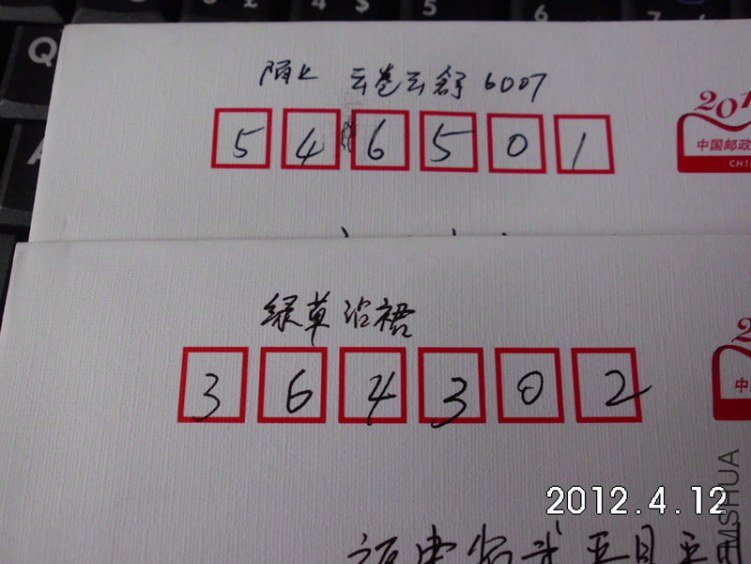 Q
陌上 云卷云舒 6007
546501
201
中国邮政
CHI
绿草沿裙
364302
2
中
2012.4.12
MSHUA